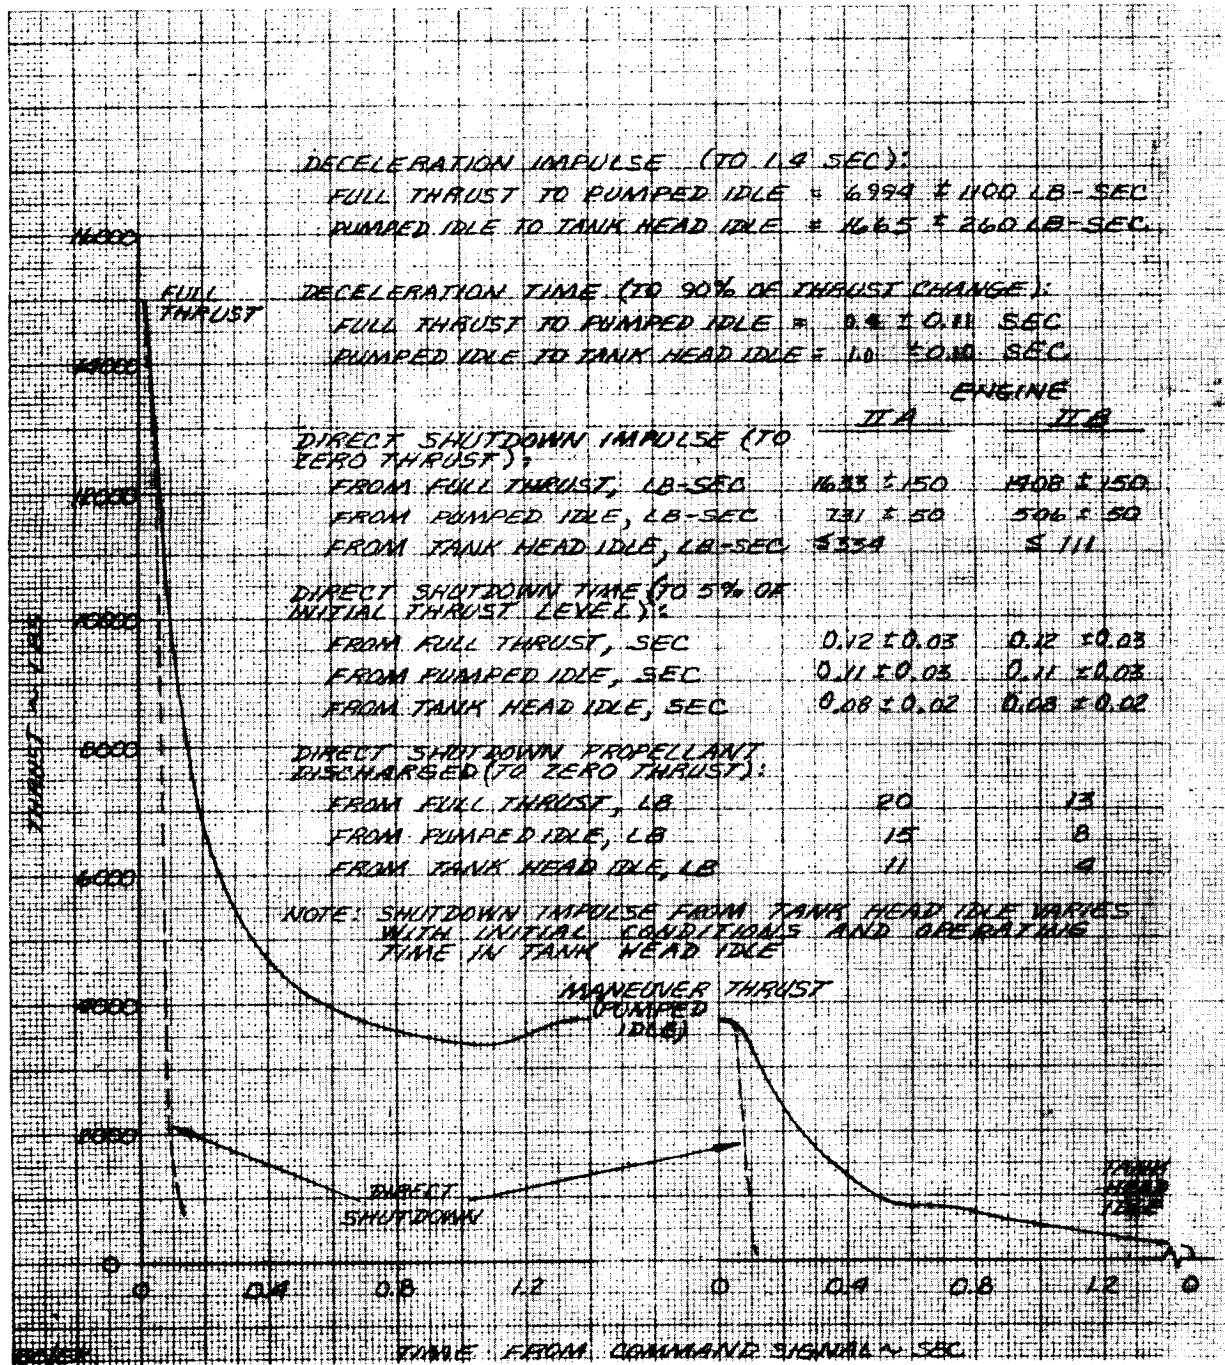 DECELERATION IMPULSE (TO 1.4 SEC):
FULL THRUST TO PUMPED IDLE = 6994 ± 1100 LB-SEC
PUMPED IDLE TO TANK HEAD IDLE = 1665 ± 260 LB-SEC
16000
FULL
THRUST
DECELERATION TIME (TO 90% OF THRUST CHANGE):
FULL THRUST TO PUMPED IDLE = 0.4 ± 0.11 SEC
PUMPED IDLE TO TANK HEAD IDLE = 1.0 ±0.10 SEC
14000
ENGINE
IIA IIB
DIRECT SHUTDOWN IMPULSE (TO
ZERO THRUST):
FROM FULL THRUST, LB-SEC 1633 ± 150 1408 ± 150
12000
FROM PUMPED IDLE, LB-SEC 731 ± 50 506 ± 50
FROM TANK HEAD IDLE, LB-SEC ≤334 ≤ 111
DIRECT SHUTDOWN TIME (TO 5% OF
INITIAL THRUST LEVEL):
10000
FROM FULL THRUST, SEC 0.12 ± 0.03 0.12 ±0.03
FROM PUMPED IDLE, SEC 0.11 ± 0.03 0.11 ±0.03
FROM TANK HEAD IDLE, SEC 0.08 ± 0.02 0.08 ± 0.02
THRUST ~ LBS
8000
DIRECT SHUTDOWN PROPELLANT
DISCHARGED (TO ZERO THRUST):
FROM FULL THRUST, LB 20 13
FROM PUMPED IDLE, LB 15 8
FROM TANK HEAD IDLE, LB 11 4
6000
NOTE: SHUTDOWN IMPULSE FROM TANK HEAD IDLE VARIES
WITH INITIAL CONDITIONS AND OPERATING
TIME IN TANK HEAD IDLE
MANEUVER THRUST
(PUMPED
IDLE)
4000
2000
DIRECT
SHUTDOWN
TANK
HEAD
IDLE
0
0 0.4 0.8 1.2 0 0.4 0.8 1.2 0
TIME FROM COMMAND SIGNAL ~ SEC